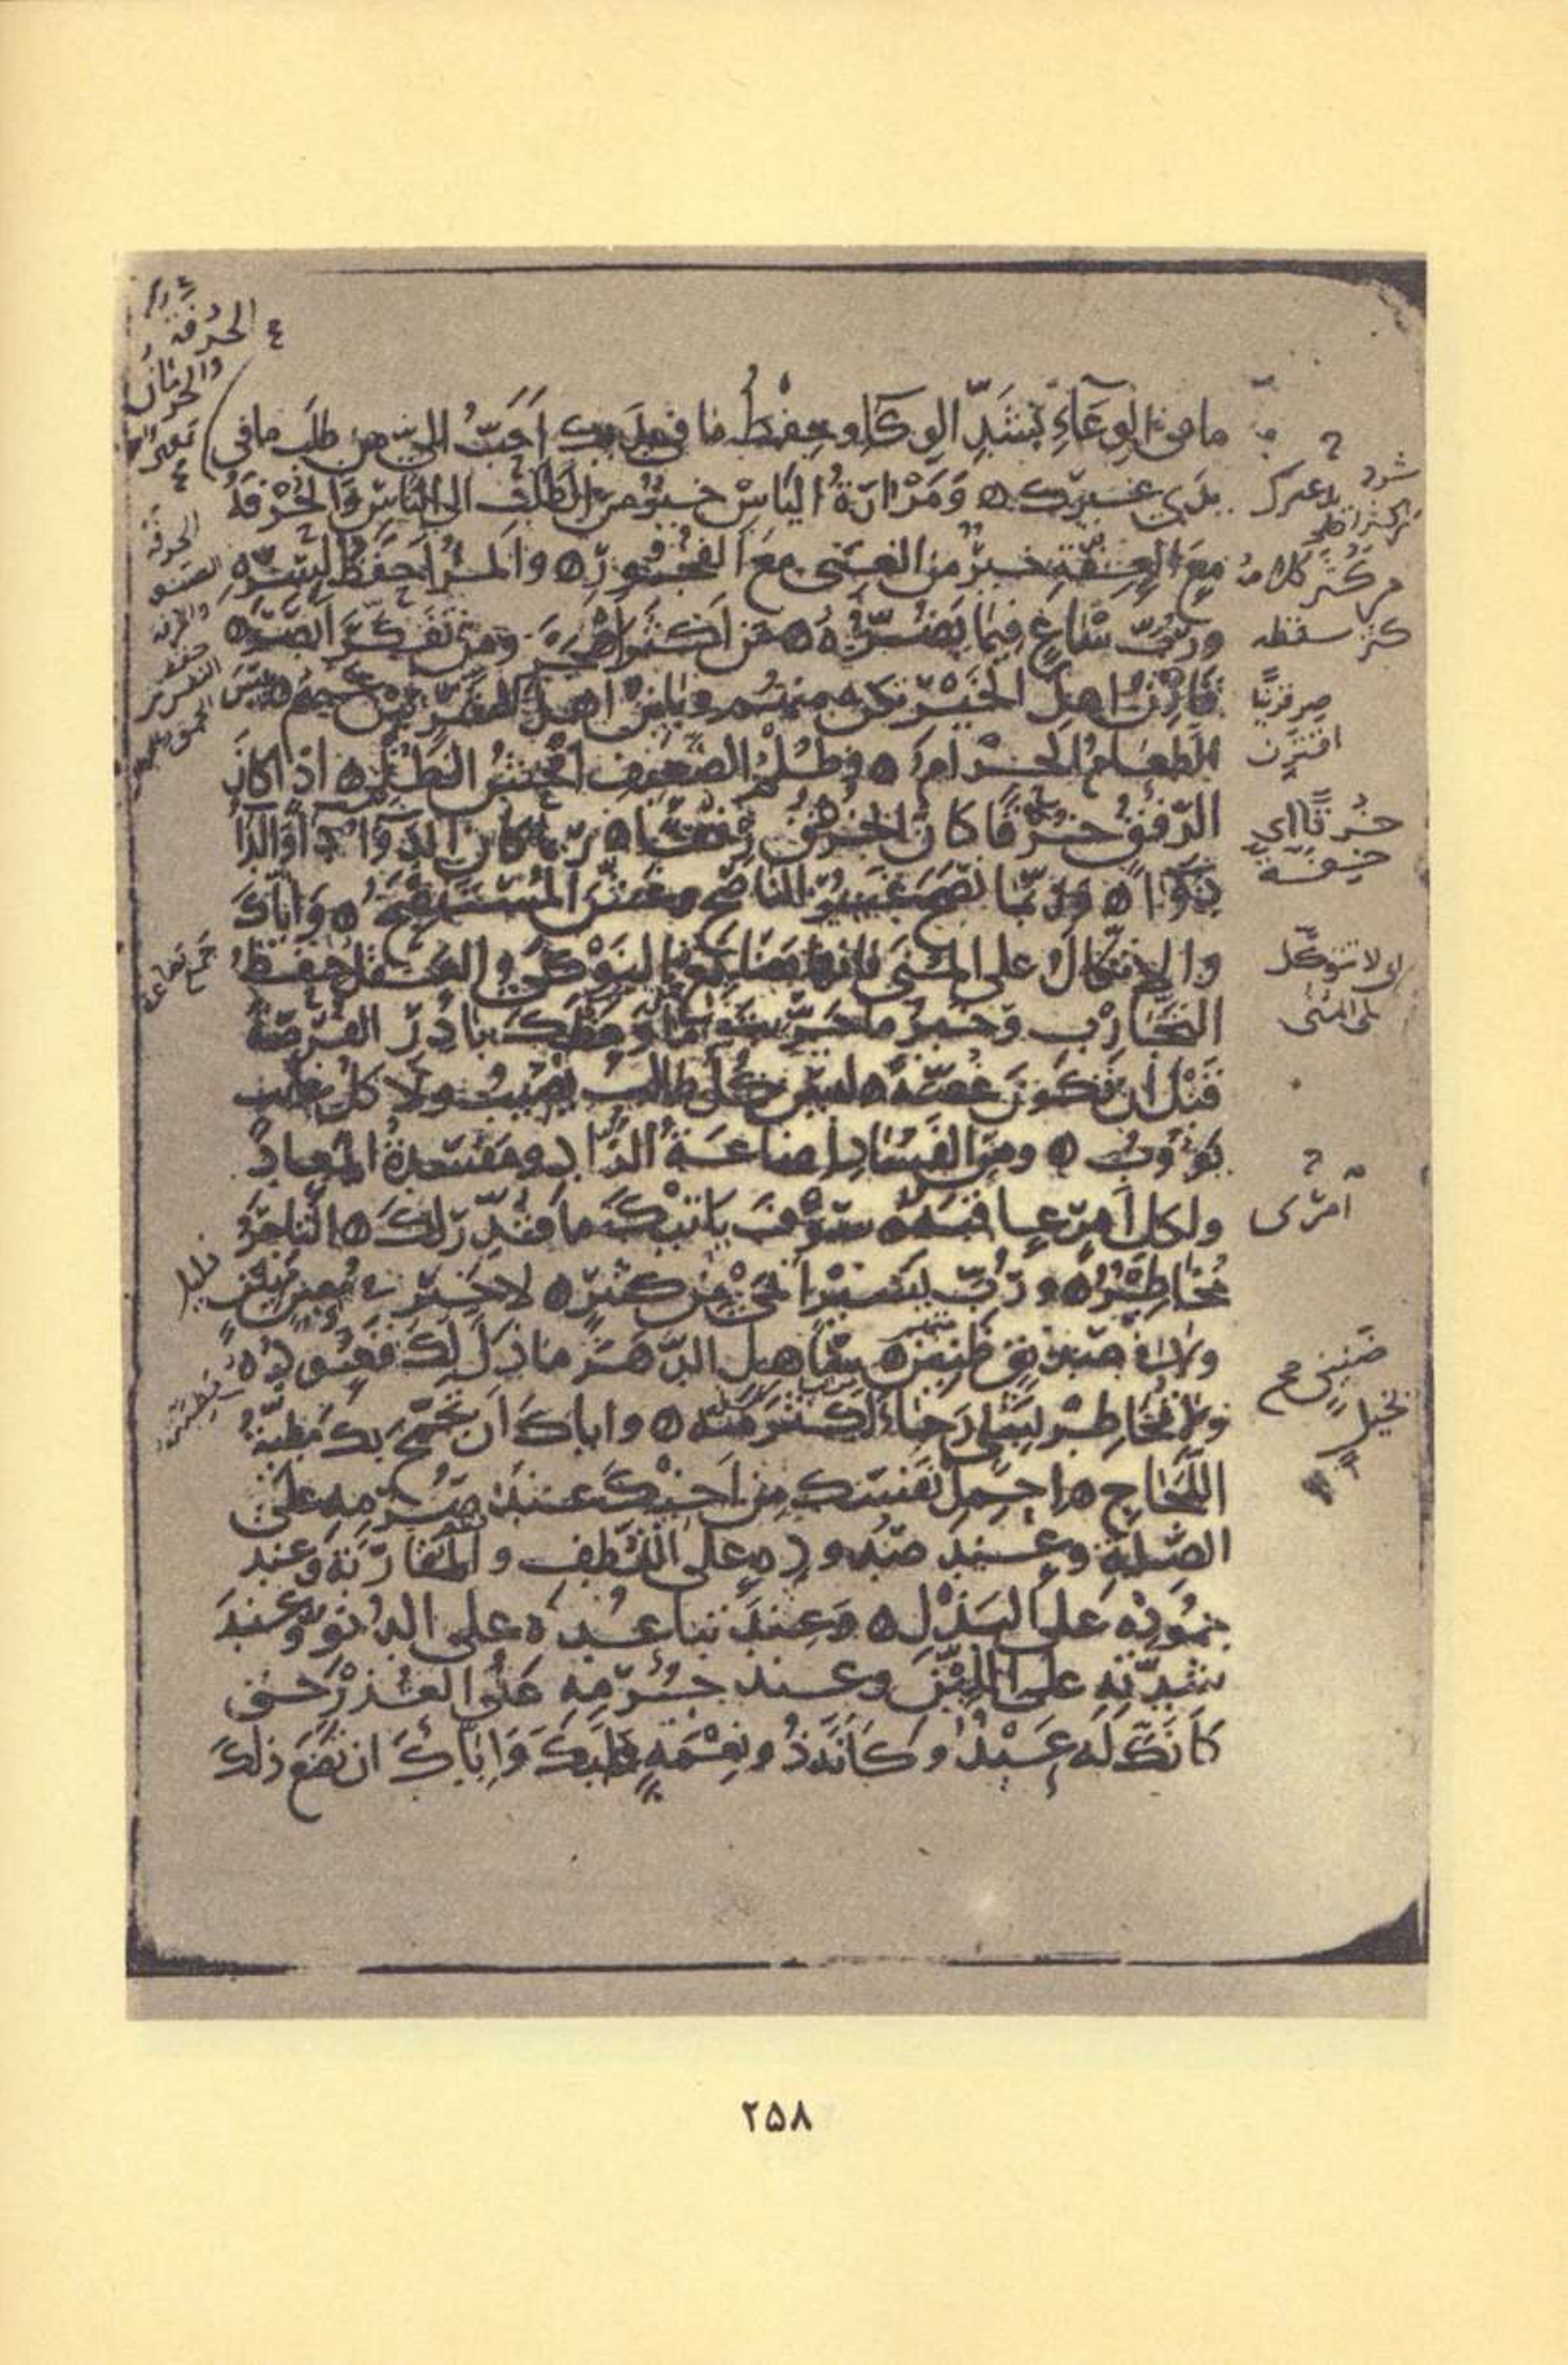 ما في الوعاء بشد الوكاء وحفظ ما في يديك احب الي من طلب ما في
يدي غيرك ومرارة الياس خير من الطلب الى الناس والحرفة
مع العفة خير من الغنى مع الفجور والمرء احفظ لسره
ورب ساع فيما يضره من اكثر اهجر ومن تفكر ابصر
قارن اهل الخير تكن منهم وباين اهل الشر تبن عنهم بئس
الطعام الحرام وظلم الضعيف افحش الظلم اذا كان
الرفق خرقا كان الخرق رفقا ربما كان الدواء داء والداء
دواء وربما نصح غير الناصح وغش المستنصح واياك
والاتكال على المنى فانها بضايع النوكى والعقل حفظ
التجارب وخير ما جربت ما وعظك بادر الفرصة
قبل ان تكون غصة ليس كل طالب يصيب ولا كل غايب
يؤوب ومن الفساد اضاعة الزاد ومفسدة المعاد
ولكل امر عاقبة سوف ياتيك ما قدر لك التاجر
مخاطر ورب يسير انمى من كثير لا خير في معين مهين
ولا في صديق ظنين ساهل الدهر ما ذل لك قعوده
ولا تخاطر بشي رجاء اكثر منه واياك ان تجمح بك مطية
اللجاج احمل نفسك من اخيك عند صرمه على
الصلة وعند صدوده على اللطف والمقاربة وعند
جموده على البذل وعند تباعده على الدنو وعند
شدته على اللين وعند جرمه على العذر حتى
كانك له عبد وكانه ذو نعمة عليك واياك ان تضع ذلك
الحرفة
والحرمان
الحرفة
كثر سقطه
اقترن
خرقا اي
لا تتوكل
على المنى
امرى
ضنين
بخيل
۲۵۸